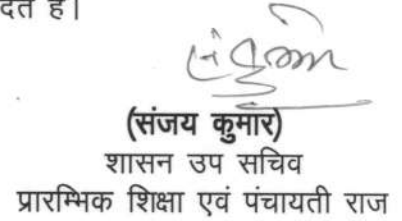 देते है।
(संजय कुमार)
शासन उप सचिव
प्रारम्भिक शिक्षा एवं पंचायती राज